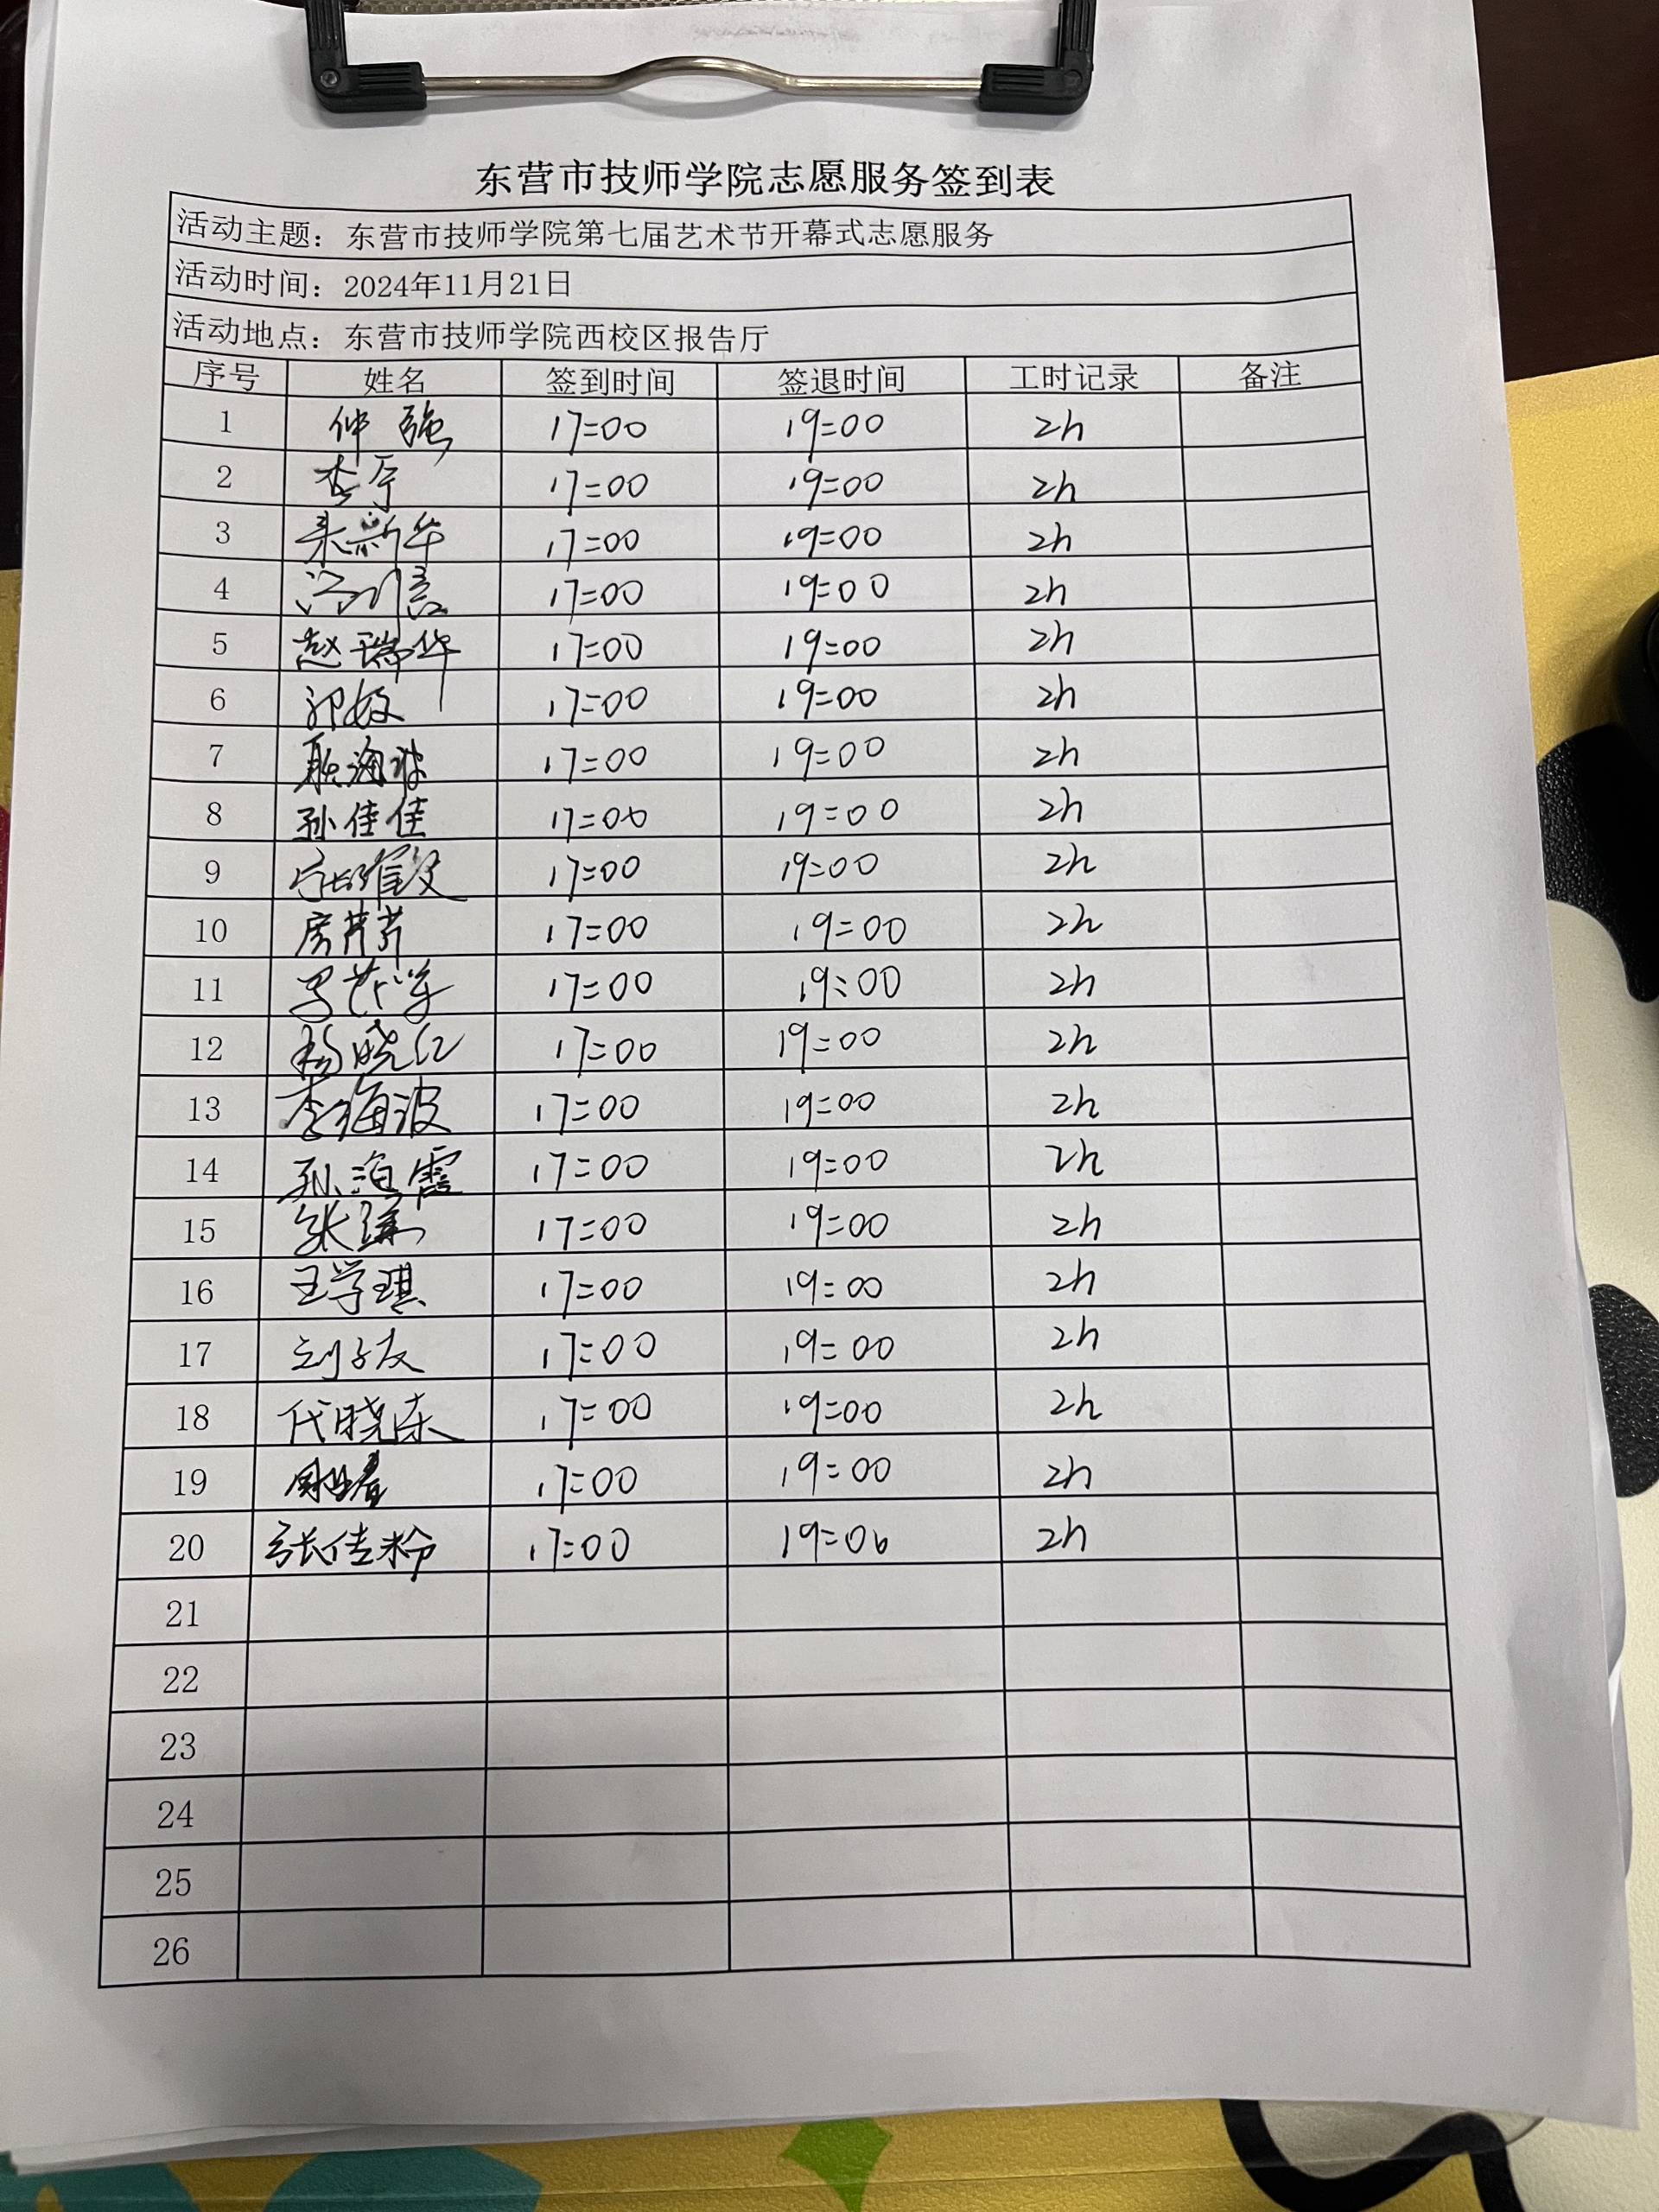 东营市技师学院志愿服务签到表
活动主题：东营市技师学院第七届艺术节开幕式志愿服务
活动时间：2024年11月21日
活动地点：东营市技师学院西校区报告厅
序号 姓名 签到时间 签退时间 工时记录 备注
1 仲强 17:00 19:00 2h
2 李宁 17:00 19:00 2h
3 新华 17:00 19:00 2h
4 17:00 19:00 2h
5 赵瑞华 17:00 19:00 2h
6 17:00 19:00 2h
7 耿海波 17:00 19:00 2h
8 孙佳佳 17:00 19:00 2h
9 17:00 19:00 2h
10 房芹芹 17:00 19:00 2h
11 17:00 19:00 2h
12 杨晓红 17:00 19:00 2h
13 李海波 17:00 19:00 2h
14 孙海霞 17:00 19:00 2h
15 张 17:00 19:00 2h
16 王学琪 17:00 19:00 2h
17 刘子友 17:00 19:00 2h
18 代晓东 17:00 19:00 2h
19 17:00 19:00 2h
20 张佳粉 17:00 19:00 2h
21
22
23
24
25
26